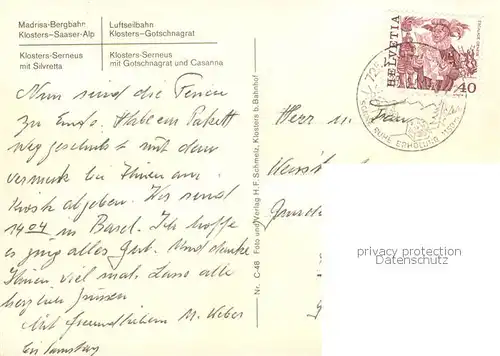 Madrisa-Bergbahn
Klosters-Saaser-Alp
Luftseilbahn
Klosters-Gotschnagrat
Klosters-Serneus
mit Silvretta
Klosters-Serneus
mit Gotschnagrat und Casanna
Nun sind die Ferien
zu Ende. Habe ein Pakett
weg geschickt mit dem
vermerk bei Ihnen am
Kiosk abgeben. Wir sind
1404 in Basel. Ich hoffe
es ging alles Gut. Und danke
Ihnen viel mal. Lasse alle
herzlich Grüssen
Mit freundlichem M. Weber
Nr. C-48 Foto und Verlag H. F. Schmelz, Klosters b. Bahnhof
HELVETIA
40
RUHE ERHOLUNG
Herr
Frau
privacy protection
Datenschutz